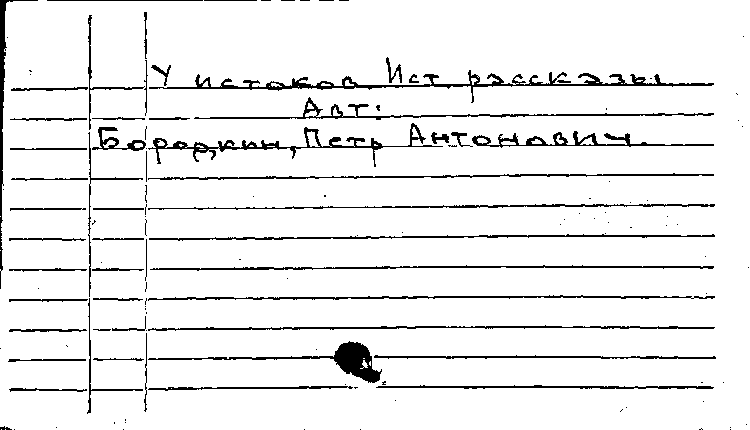 У истоков. Ист. рассказы.
Авт:
Бородкин, Петр Антонович.